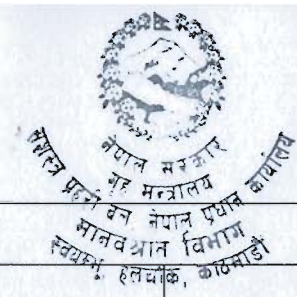 नेपाल सरकार
गृह मन्त्रालय
सशस्त्र प्रहरी बल नेपाल प्रधान कार्यालय
मानवश्रोत विभाग
स्वयम्भू, हल्चोक, काठमाडौं